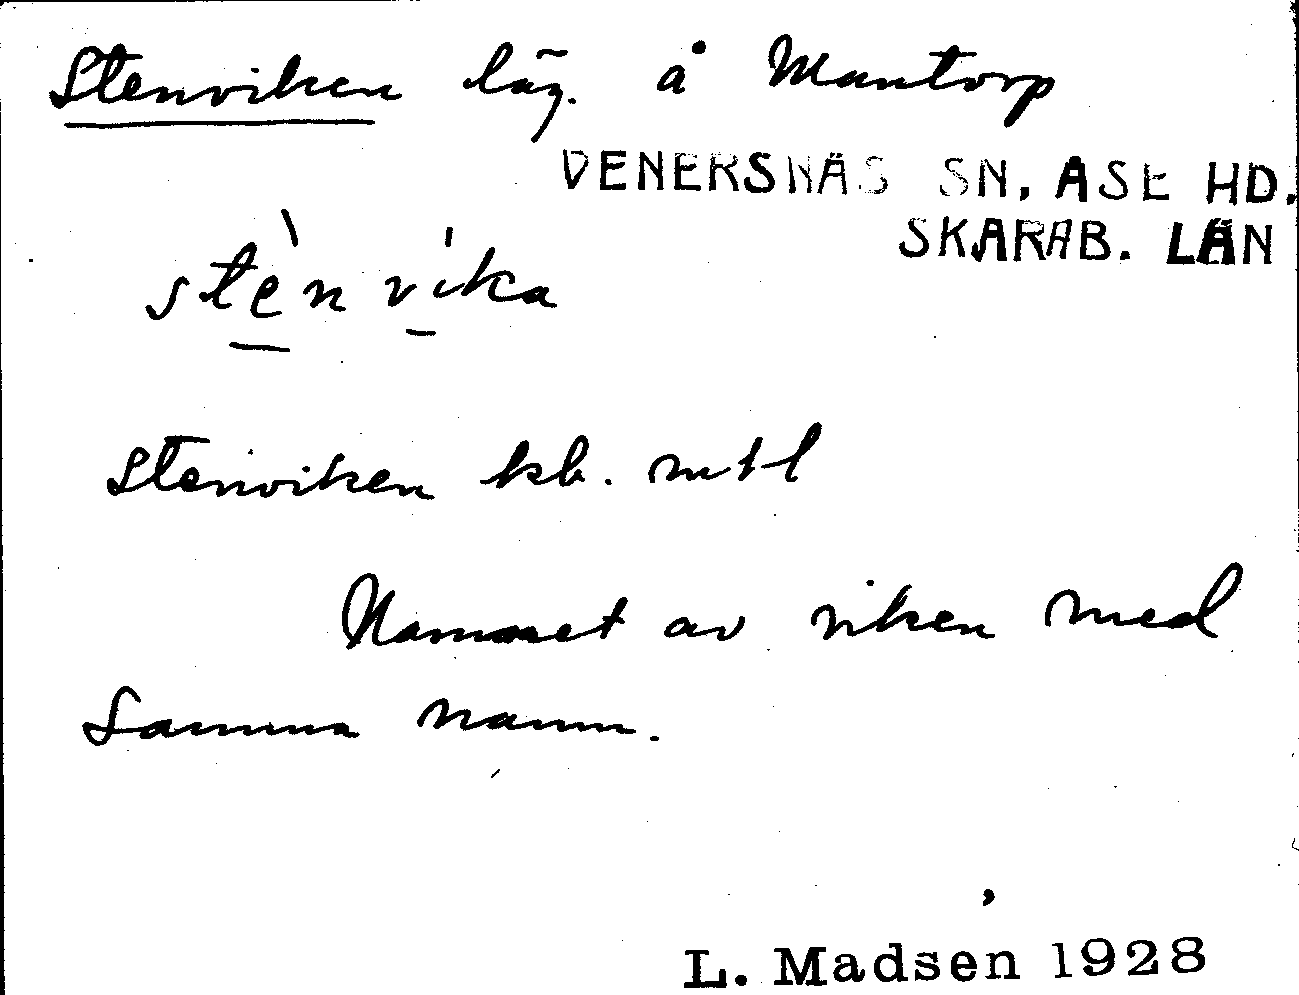 Stenviken läg. å Mantorp
VENERSNÄS SN, ASE HD.
SKARAB. LÄN
stè̱n vi̱ka
Stenviken kb. mtl
Namnet av viken med
samma namn.
L. Madsen 1928